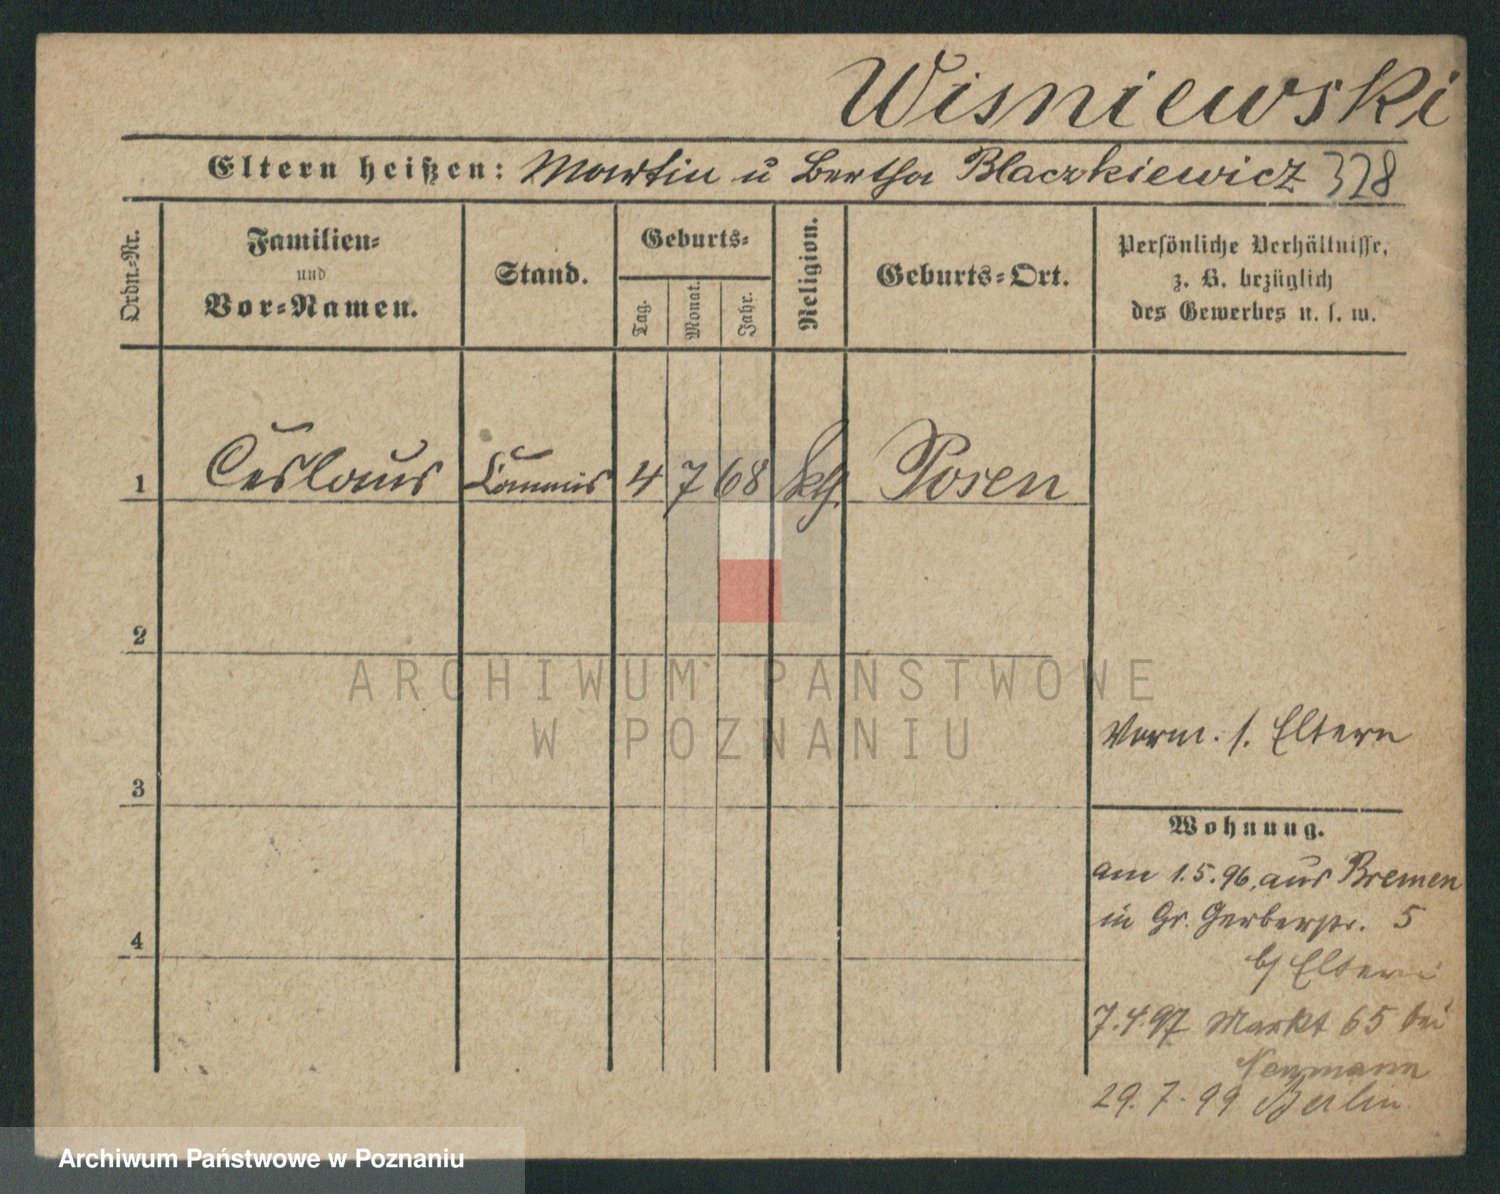 Wisniewski
Eltern heißen: Martin u Bertha Blaczkiewicz 328
Ordn.-Nr.
Familien-
und
Vor-Namen.
Stand.
Geburts-
Tag.
Monat.
Jahr.
Religion.
Geburts-Ort.
Persönliche Verhältnisse,
z. B. bezüglich
des Gewerbes u. s. w.
1 Ceslaus Commis 4 7 68 kth. Posen
2
3
4
Verm. s. Eltern
Wohnung.
am 1.5.96, aus Bremen
in Gr. Gerberstr. 5
b/ Eltern
7.4.97 Markt 65 bei
Neumann
29.7.99 Berlin
ARCHIWUM PAŃSTWOWE
W POZNANIU
Archiwum Państwowe w Poznaniu